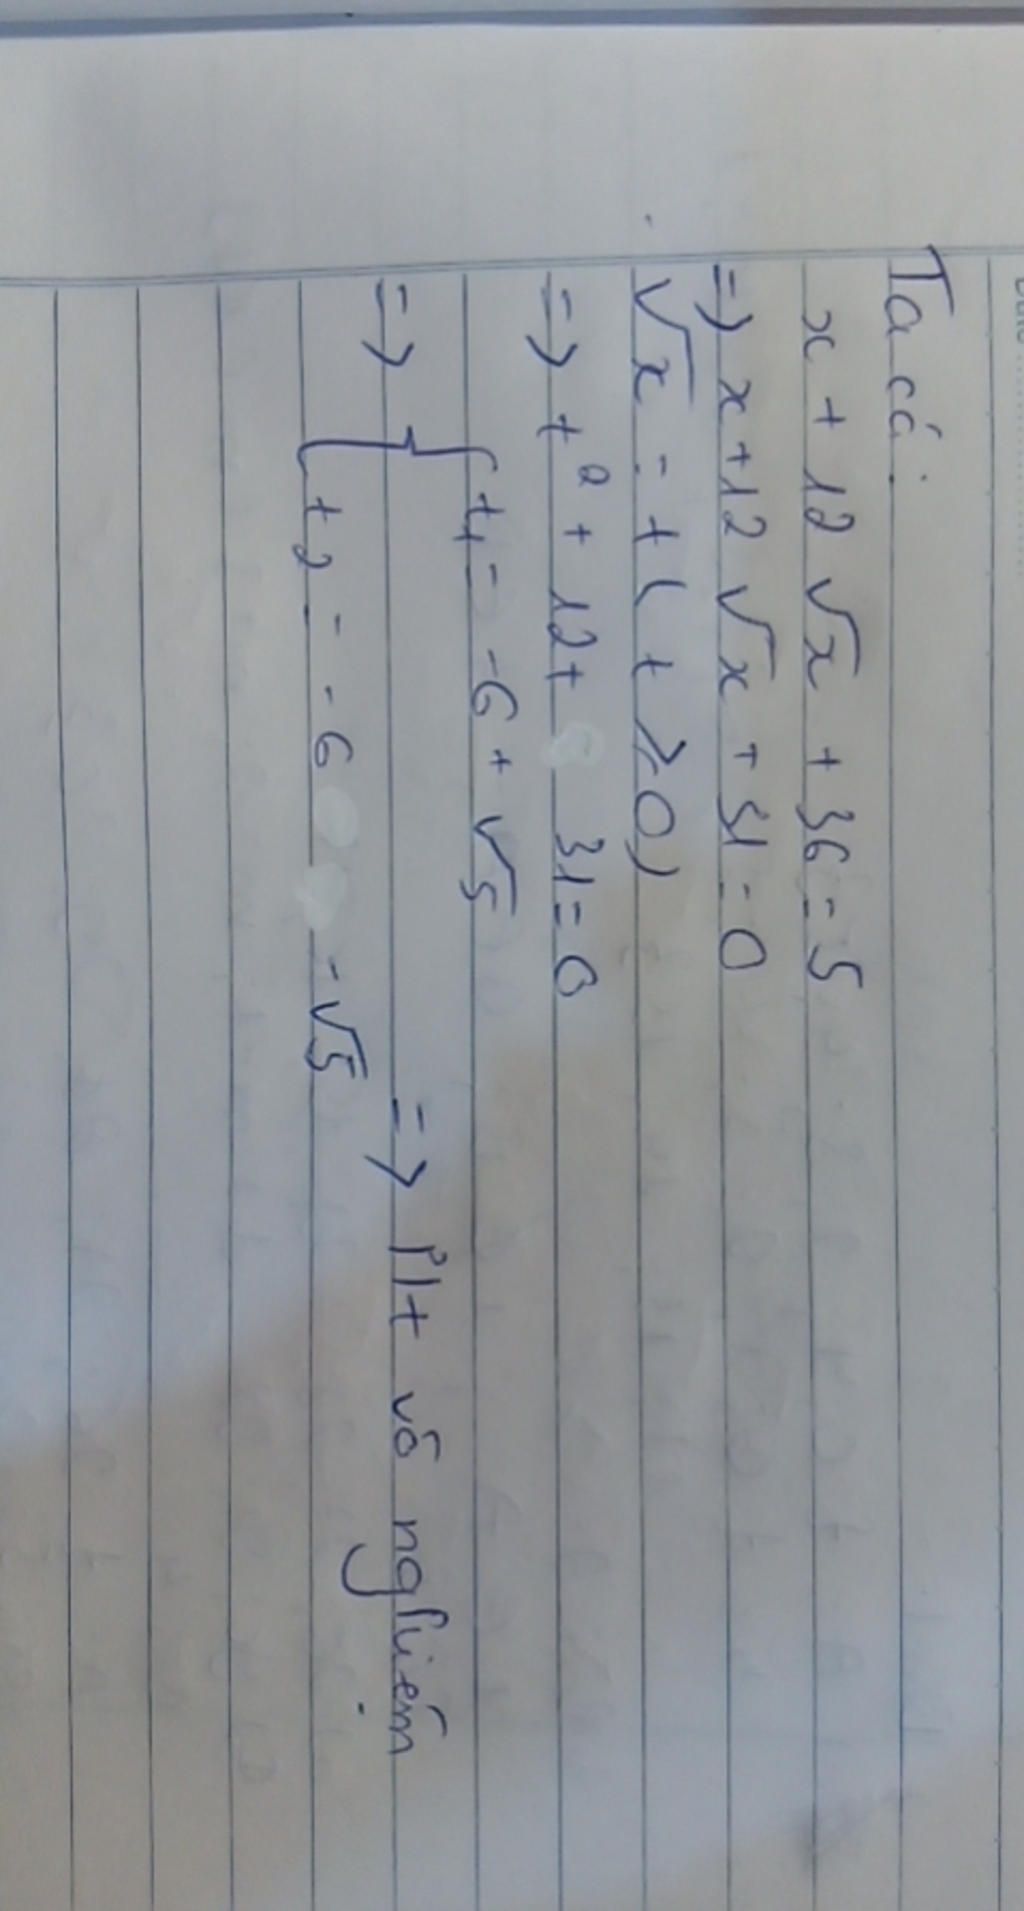 Ta có:
x + 12 √x + 36 = 5
=> x + 12 √x + 31 = 0
√x = t ( t ≥ 0)
=> t² + 12t 31 = 0
=> { t1 = -6 + √5
t2 = -6 - √5
=> Pt vô nghiệm